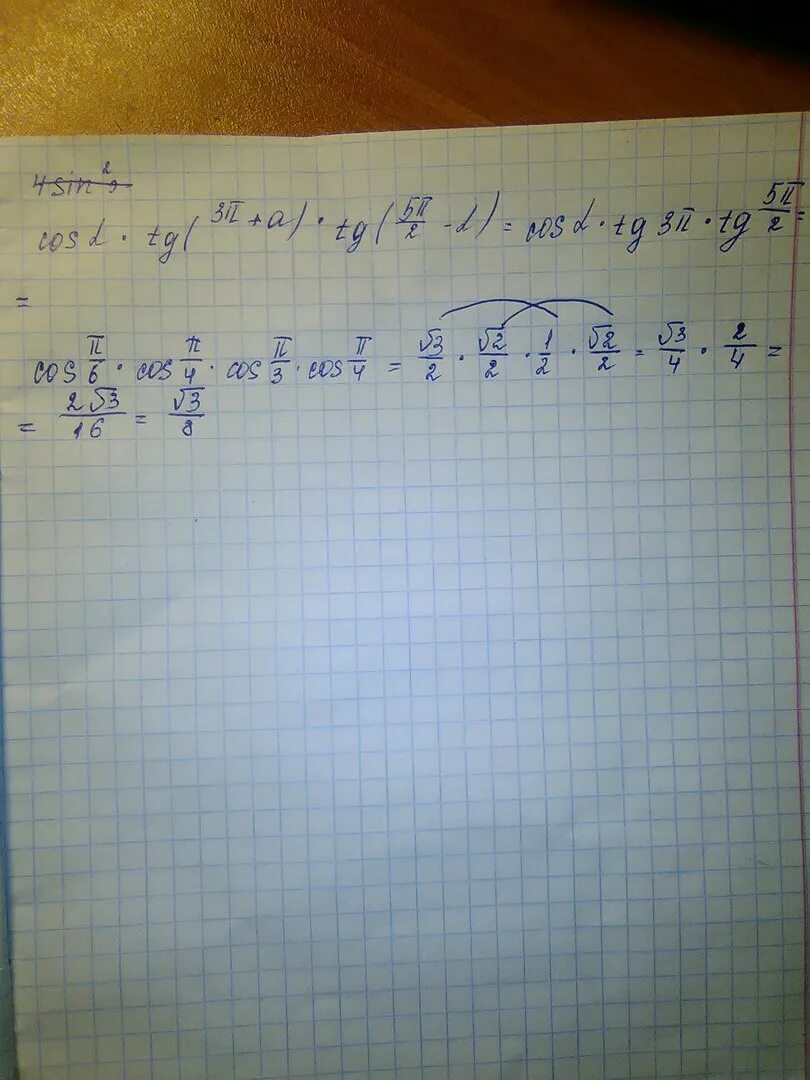 4sin²
cos α · tg(3π + a) · tg(5π/2 - α) = cos α · tg 3π · tg 5π/2 =
=
cos π/6 · cos π/4 · cos π/3 · cos π/4 = √3/2 · √2/2 · 1/2 · √2/2 = √3/4 · 2/4 =
= 2√3/16 = √3/8